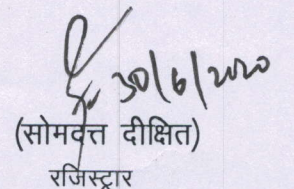 30/6/2020
(सोमदत्त दीक्षित)
रजिस्ट्रार